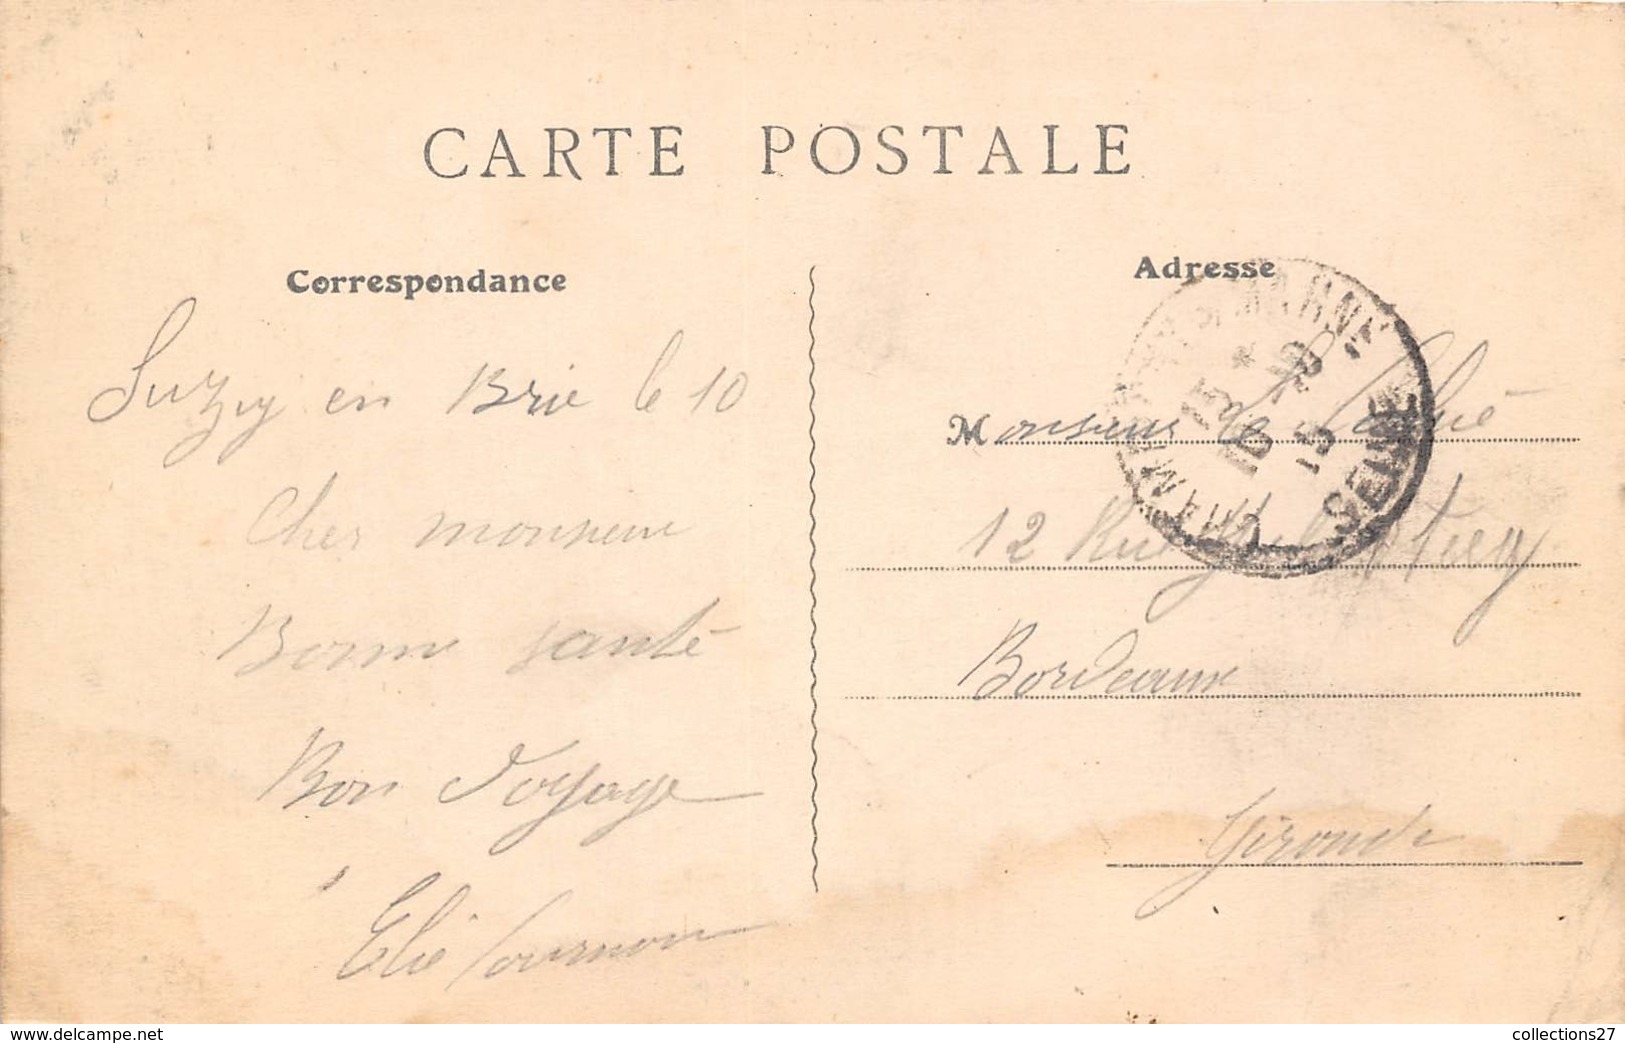 CARTE POSTALE
Correspondance
Suzy en Brie le 10
Cher monsieur
Bonne santé
Bon Voyage
Elie Tournon
Adresse
Monsieur de
12 Rue
Bordeaux
Gironde
MARNE
SEINE
www.delcampe.net
collections27